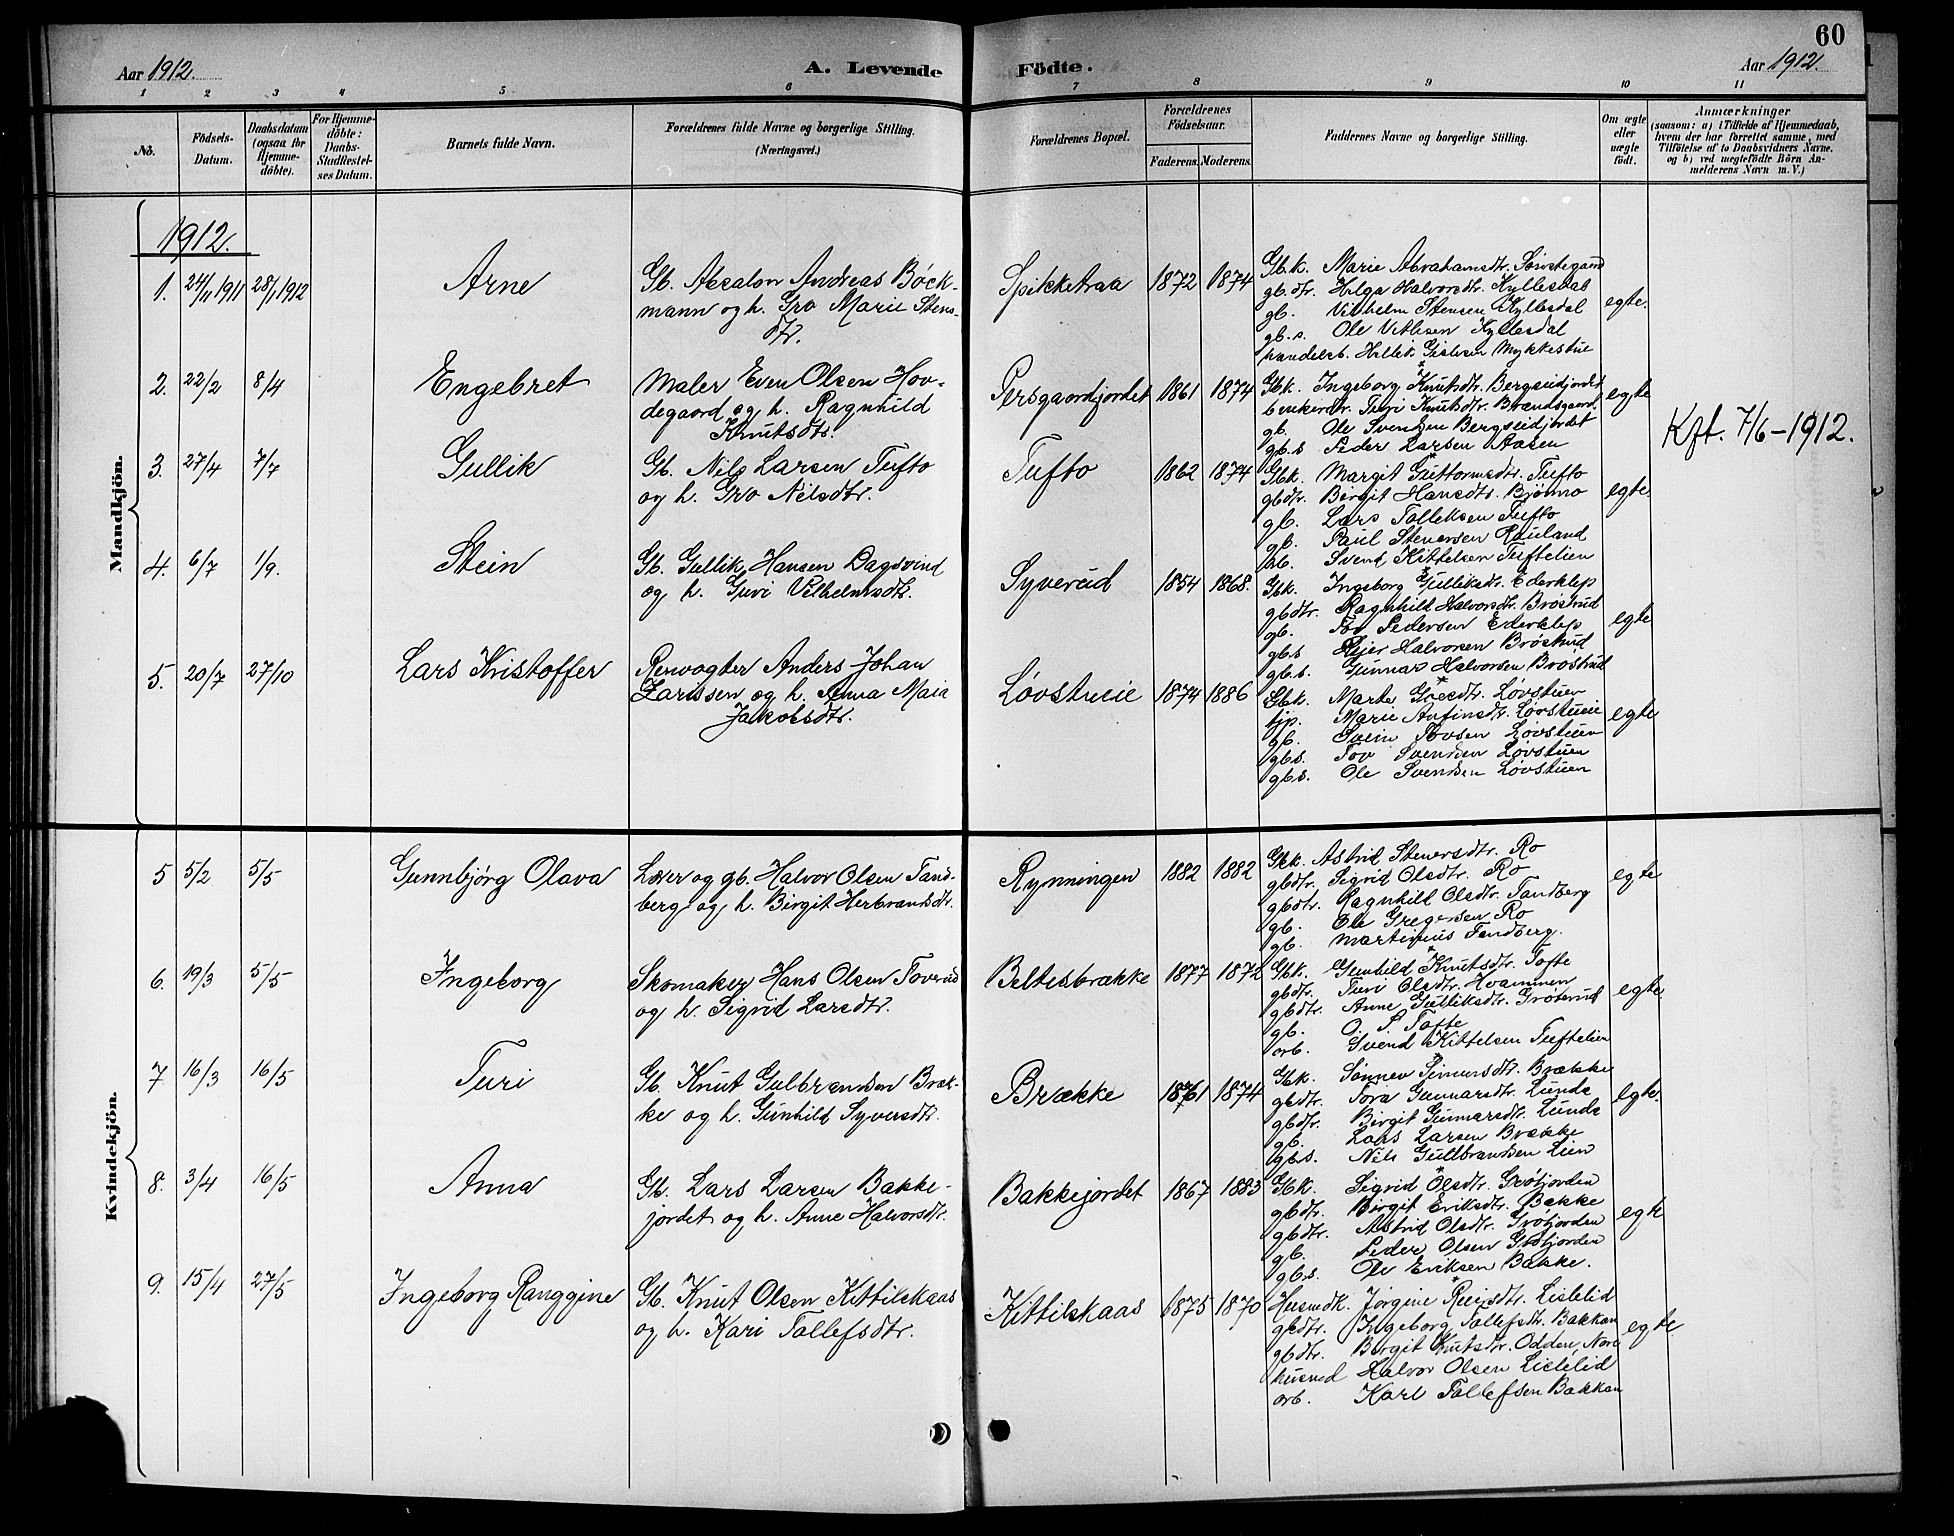 60
Aar 1912.
A. Levende Födte.
Aar 1912.
1 2 3 4 5 6 7 8 9 10 11
No.
Födsels-Datum.
Daabsdatum (ogsaa for Hjemme-döbte).
For Hjemme-döbte: Daabs-Stadfæstel-ses Datum.
Barnets fulde Navn.
Forældrenes fulde Navne og borgerlige Stilling. (Næringsvei.)
Forældrenes Bopæl.
Forældrenes Födselsaar.
Faderens. Moderens.
Faddernes Navne og borgerlige Stilling.
Om ægte eller uægte födt.
Anmærkninger
(saasom: a) i Tilfælde af Hjemmedaab,
hvem der har forrettet samme, med
Tilföielse af to Daabsvidners Navne.
og b) ved uegtefödte Börn An-
melderens Navn m. V.)
Mandkjön.
1912.
1. 24/11 1911 28/1 1912 Arne
Gb. Absalon Andreas Böck-
mann og h. Gro Marie Stens-
dtr.
Spikketraa 1872 1874
Gbk. Marie Abrahamsdtr.
gb.dtr. Helga Halvorsdtr. Kyllesdal
gb. Vilhelm Stensen Kyllesdal
gb.s. Ole Kyllesdal
handelsb. Mykkestue
egte.
2. 22/2 8/4 Engebret
Maler Even Olsen Hov-
degaard og h. Ragnhild
Knutsdtr.
Persgaardjordet 1861 1874
Gbk. Ingeborg Knutsdtr. Bergseidjordet
Turi Knutsdtr. Brandsgaard
gb. Ole Svendsen Bergseidjordet
gb.s Peder Larsen Aasen
egte
Kft. 7/6-1912.
3. 27/4 7/7 Gullik
Gb. Nils Larsen Tufto
og h. Gro Nilsdtr.
Tufto 1862 1874
Gbk. Margit Guttormsdtr. Tufto
gbdtr. Birgit Hansdtr. Bjömo
gb. Lars Tolleksen Tufto
gb. Paul Stenersen Rauland
Svend Kittelsen Tuftelien
egte.
4. 6/7 1/9. Stein
Gb. Gullik Hansen Dagsvind
og h. Guri Vilhelmsdtr.
Syverud 1854 1868.
Gbk. Ingeborg Gulliksdtr. Ederklep
gbdtr. Ragnhild Halvorsdtr. Bröstrud
gb. Tov Pedersen Ederklep
gbs Halvorsen Bröstrud
gb.s. Gunnar Halvorsen Bröstrud
egte
5. 20/7 27/10 Lars Kristoffer
Renvogter Anders Johan
Larssen og h. Anna Maia
Jakobsdtr.
Lövstueie 1874 1886
Gbk. Marte Lövstuen
tjp. Marie Anfinsdtr. Lövstueie
gb. Svein Tovsen Lövstuen
gbs. Tov Svendsen Lövstuen
gbs. Ole Svendsen Lövstuen
egte
Kvindekjön.
5 5/2 5/5 Gunnbjörg Olava
Lærer og gb. Halvor Olsen Tand-
berg og h. Birgit Herbrandsdtr.
Rynningen 1882 1882
Gbk. Astrid Stenersdtr. Ro
gbdtr. Sigrid Olsdtr. Ro
gbdtr. Ragnhild Olsdtr. Tandberg
gb. Ole Gregersen Ro
gb. Martinius Tandberg.
egte
6. 19/3 5/5 Ingeborg
Skomaker Hans Olsen Toverud
og h. Sigrid Larsdtr.
Beltesbrække 1877 1872
Gbk. Gunhild Knutsdtr. Tofte
gbdtr. Turi Olsdtr. Hvammen
gbdtr. Anne Gulliksdtr. Gröterud
gb. O. P. Tofte
arb. Svend Kittelsen Tuftelien
egte
7 16/3 16/5 Turi
Gb. Knut Gulbrandsen Bræk-
ke og h. Gunhild Syversdtr.
Brække 1861 1874
Gbk. Sönnev Simunsdtr. Brække
gbdtr. Tora Gunnarsdtr. Lunde
gbdtr. Birgit Gunnarsdtr. Lunde
gb. Lars Larsen Brække
gbs. Nils Gulbrandsen Lien
egte.
8. 3/4 16/5 Anna
Gb. Lars Larsen Bakke-
jordet og h. Anne Halvorsdtr.
Bakkejordet 1867 1883
Gbk. Sigrid Olsdtr. Gröfjorden
gbdtr. Birgit Eriksdtr. Bakke
gbdtr. Astrid Olsdtr. Gröfjorden
gb. Peder Olsen Gröfjorden
gb.s. Ole Eriksen Bakke.
egte
9. 15/4 27/5 Ingeborg Ranggine
Gb. Knut Olsen Kittilskaas
og h. Kari Tollefsdtr.
Kittilskaas 1875 1870
Husmdk. Jörgine Lislelid
gbdtr. Ingeborg Tollefsdtr. Bakkan
gbdtr. Birgit Knutsdtr. Odden, Nore
husmd Halvor Olsen Lislelid
arb. Karl Tollefsen Bakkan
egte